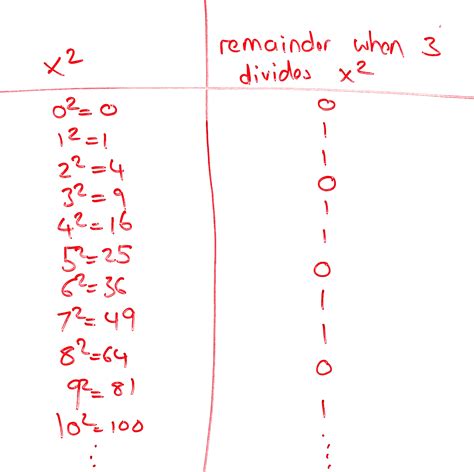 x² remainder when 3
divides x²
0²=0 0
1²=1 1
2²=4 1
3²=9 0
4²=16 1
5²=25 1
6²=36 0
7²=49 1
8²=64 1
9²=81 0
10²=100 1
⋮ ⋮